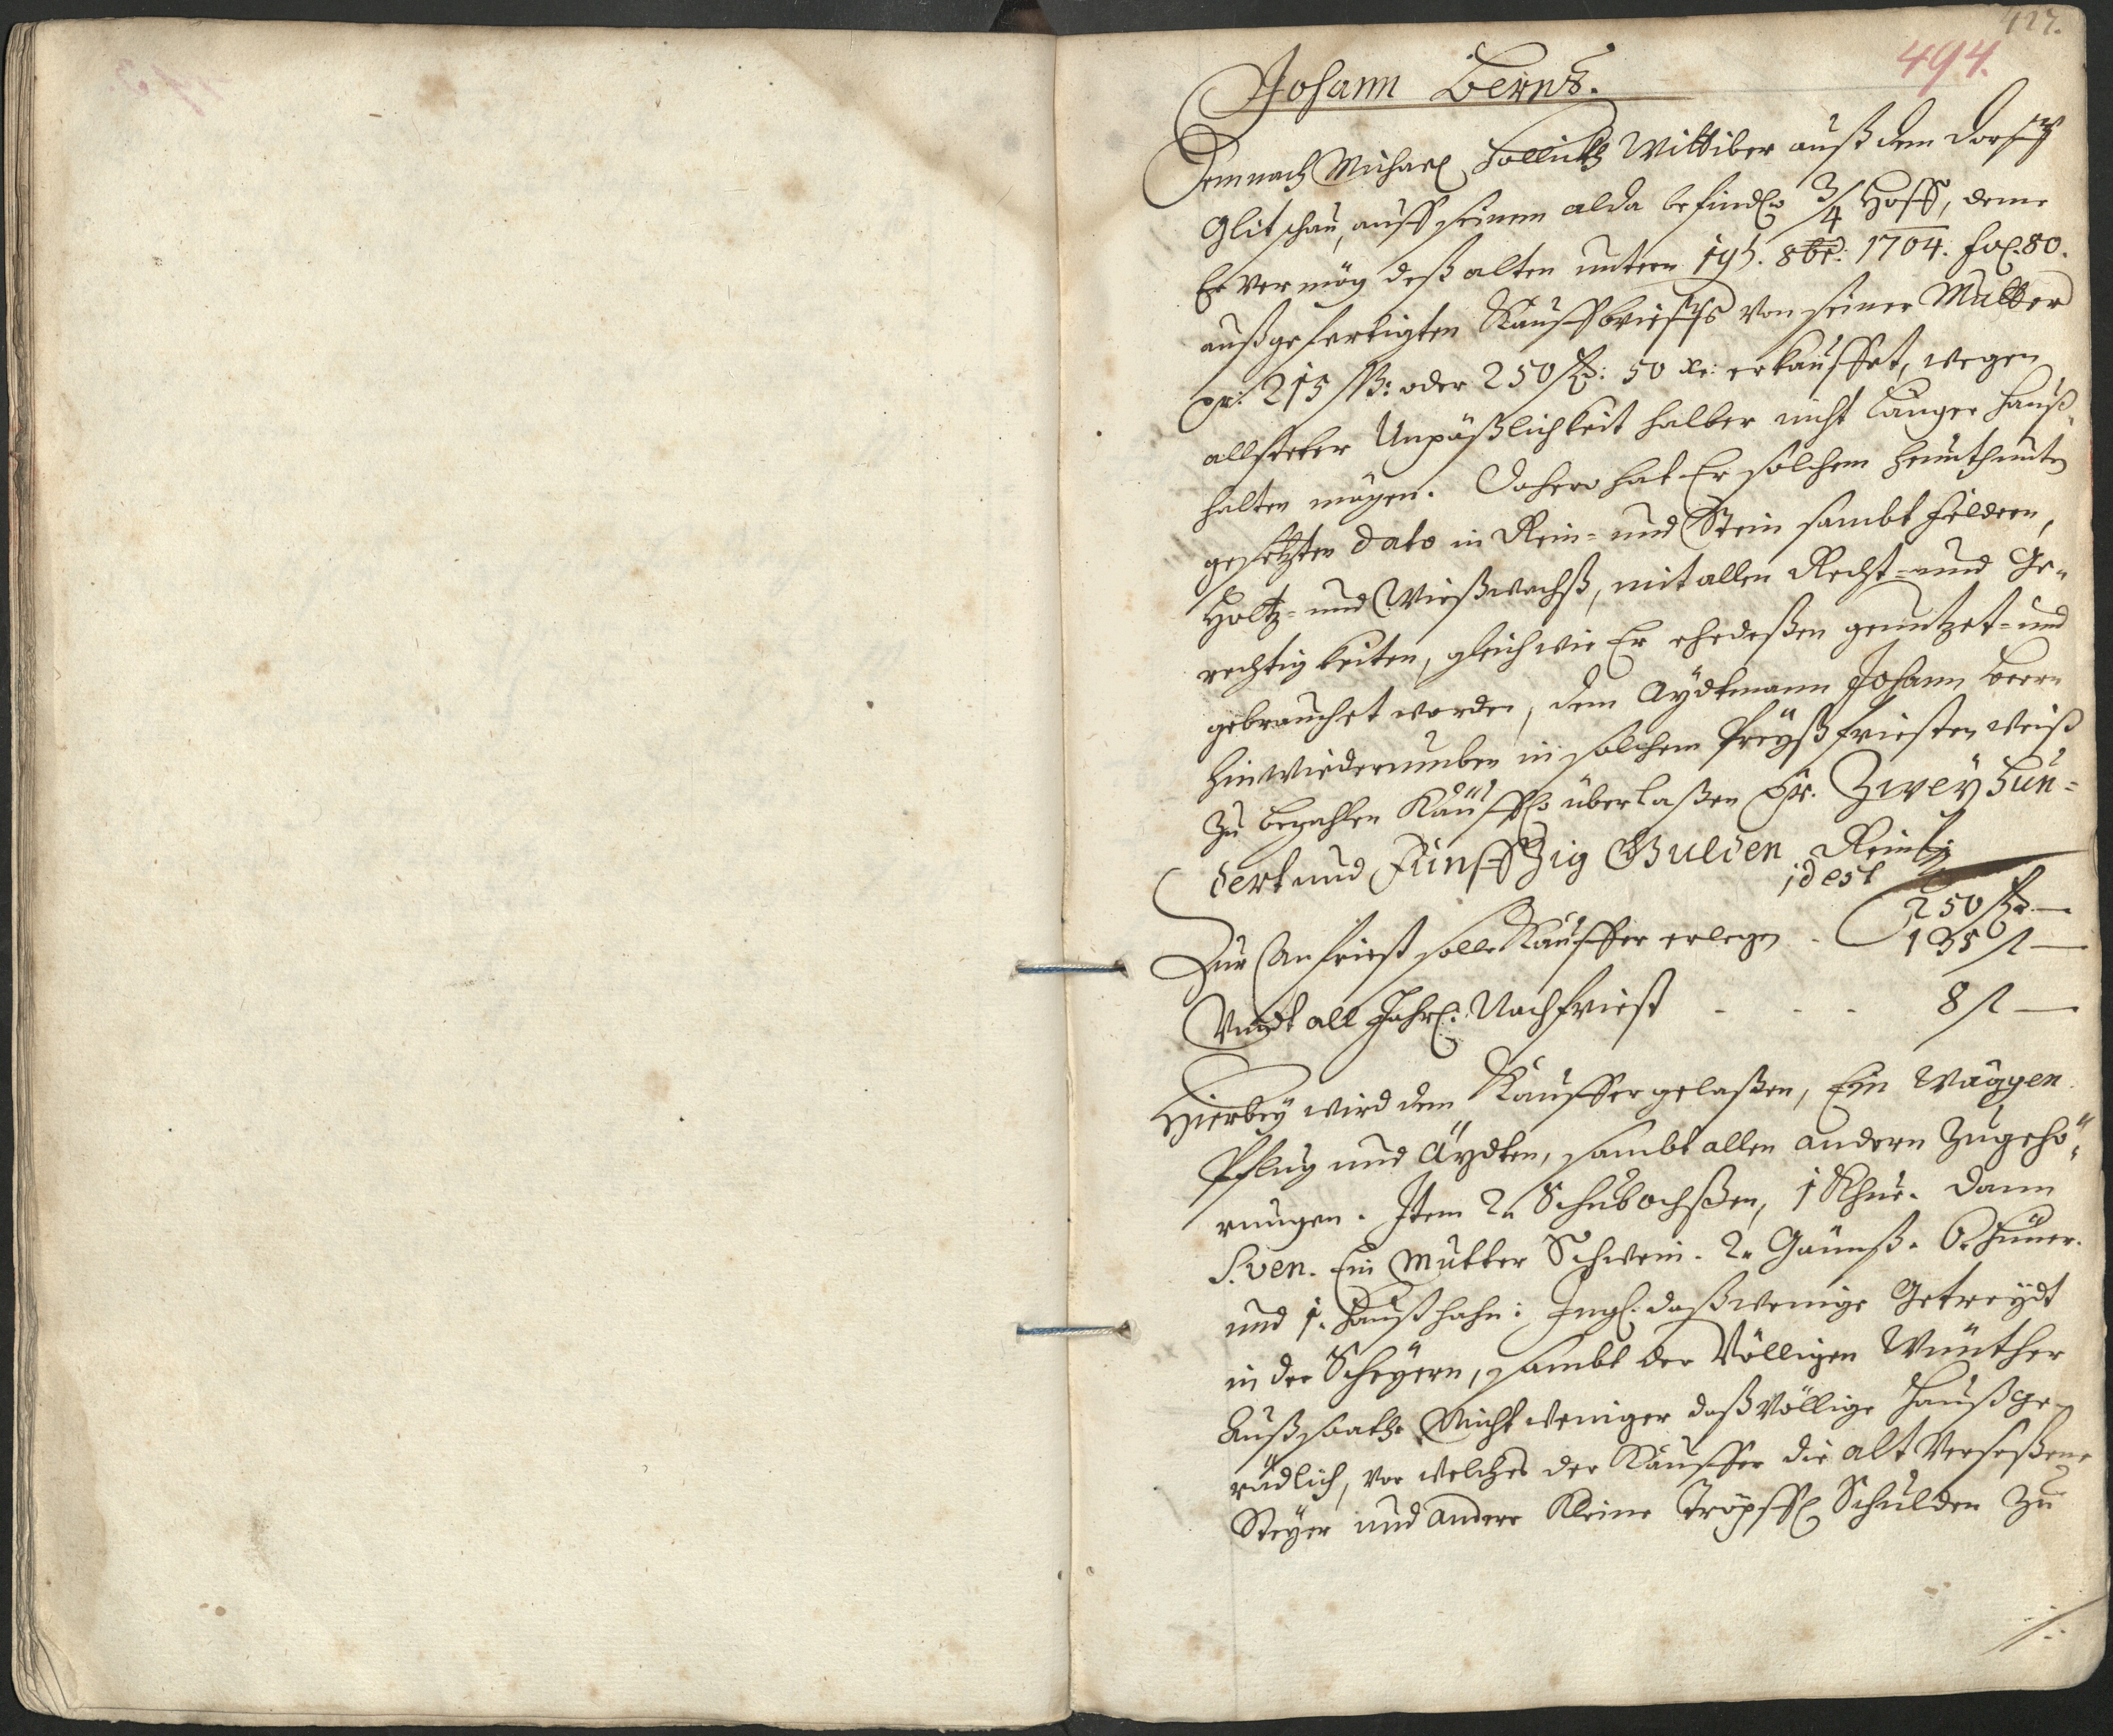 427.
494.
Johann Bernß.
Demnach Michael Hollickh Wittiber auß dem Dorff
Glitschau, auff seinem alda befindl. 3/4 Hoff, deme
Er vermög deß alten untern 19t. 8br: 1704. fol. 80.
außgefertigten Kauffbrieffs von seiner Mutter
pr. 215 ß: oder 250 f: 50 xr: erkauffet, wegen
allsteter Unpäßlichkeit halber nicht länger hauß-
halten mögen. Dahero hat Er solchem heunth unten
gesetzten dato in Rein- und Stein sambt Feldern,
Holtz- und Wießwachß, mit allen Recht- und Ge-
rechtigkeiten, gleich wie Er ehedeßen genutzet- und
gebrauchet worden, dem Aydtmann Johann Bern
hinwiederumben in solchem Preyß friesten weiß
zu bezahlen Käuffl. überlaßen pr. Zwey Hun-
dert und Fünffzig Gulden Reinl.
id est
250 f —
Zur Anfriest solle Kauffer erlegen - 135 f —
Undt all Jährl. Nachfriest - - - 8 f —
Hierbey wird dem Kauffer gelaßen, Ein Waggen
Pflug und Äydten, sambt allen andern Zugehö-
rungen. Item 2. Schubochßen, 1 Khue. dann
S. ven. Ein Mutter Schwein. 2. Gännß. 6. Hüner.
und 1. Haußhahn: Ingl. daß wenige Getreydt
in der Scheyern, sambt der Völligen Wünther
Außsaath. Nicht weniger daß Völlige Haußge-
rädlich, vor welches der Kauffer die alt Verseßene
Steyer und andere Kleine Tröpffl Schulden zu
./.